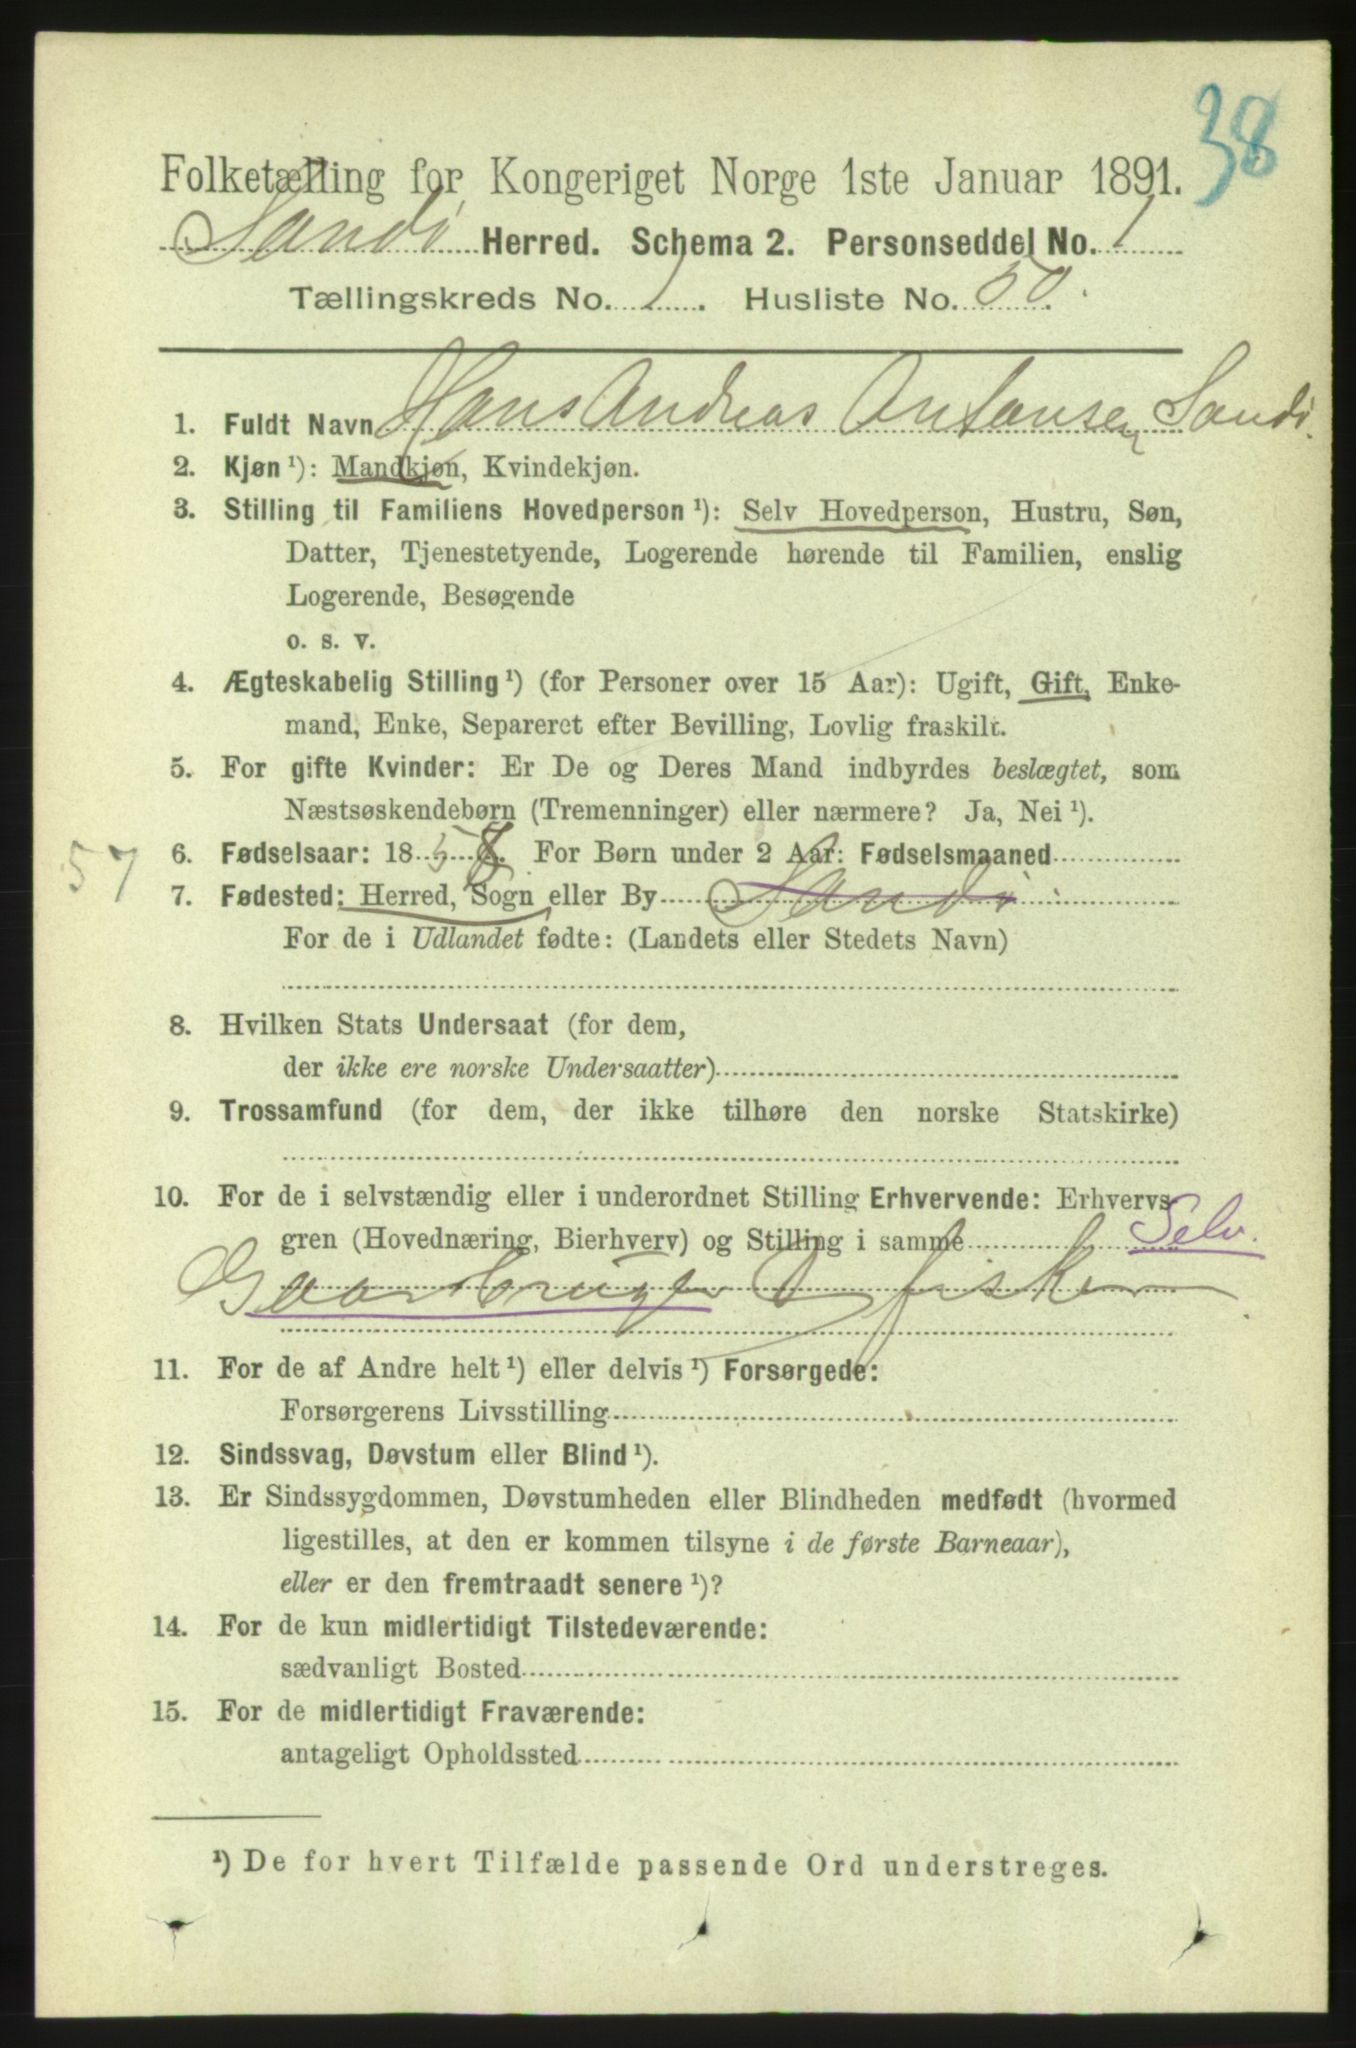 38
Folketælling for Kongeriget Norge 1ste Januar 1891.
Sandø Herred. Schema 2. Personseddel No. 1
Tællingskreds No. 1. Husliste No. 50.
1. Fuldt Navn Hans Andreas Antonsen Sandø.
2. Kjøn ¹): Mandkjøn, Kvindekjøn.
3. Stilling til Familiens Hovedperson ¹): Selv Hovedperson, Hustru, Søn,
Datter, Tjenestetyende, Logerende hørende til Familien, enslig
Logerende, Besøgende
o. s. v.
4. Ægteskabelig Stilling ¹) (for Personer over 15 Aar): Ugift, Gift, Enke-
mand, Enke, Separeret efter Bevilling, Lovlig fraskilt.
5. For gifte Kvinder: Er De og Deres Mand indbyrdes beslægtet, som
Næstsøskendebørn (Tremenninger) eller nærmere? Ja, Nei ¹).
57 6. Fødselsaar: 1858. For Børn under 2 Aar: Fødselsmaaned
7. Fødested: Herred, Sogn eller By Sandø
For de i Udlandet fødte: (Landets eller Stedets Navn)
8. Hvilken Stats Undersaat (for dem,
der ikke ere norske Undersaatter)
9. Trossamfund (for dem, der ikke tilhøre den norske Statskirke)
10. For de i selvstændig eller i underordnet Stilling Erhvervende: Erhvervs-
gren (Hovednæring, Bierhverv) og Stilling i samme Selv.
Gaardbruger & fisker
11. For de af Andre helt ¹) eller delvis ¹) Forsørgede:
Forsørgerens Livsstilling
12. Sindssvag, Døvstum eller Blind ¹).
13. Er Sindssygdommen, Døvstumheden eller Blindheden medfødt (hvormed
ligestilles, at den er kommen tilsyne i de første Barneaar),
eller er den fremtraadt senere ¹)?
14. For de kun midlertidigt Tilstedeværende:
sædvanligt Bosted
15. For de midlertidigt Fraværende:
antageligt Opholdssted
¹) De for hvert Tilfælde passende Ord understreges.